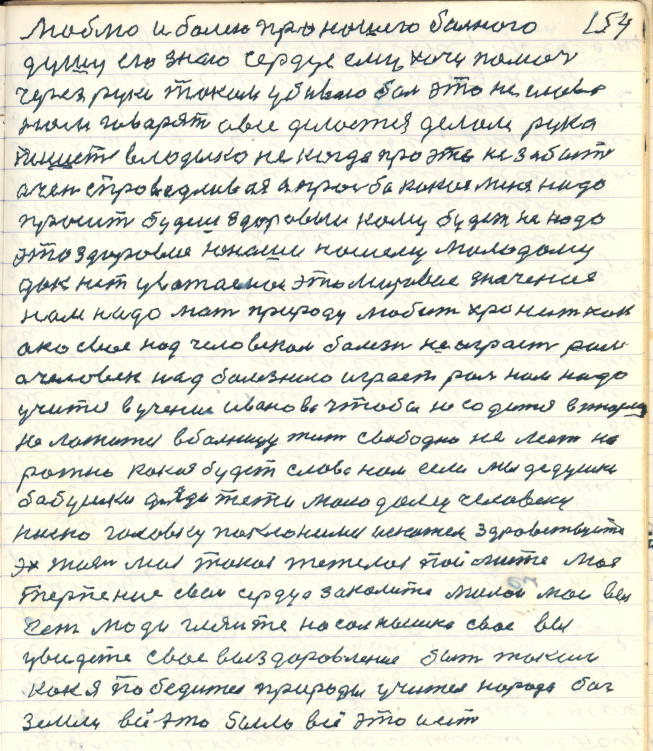 154
люблю и болею про ношего болного
душу его знаю сердце ему хочу помоч
через руки током убиваю бол это не слова
нам говарят а все делается делам рука
пишет владыко не когда про это не забыт
ачен справедливая а прозба какая меня надо
просит будеш здоровыи кому будет не надо
это здоровие юнаши нашему молодому
док нет уважаемаи это мировае значения
нам надо мат природу любит хронит как
око свае над человеком болезн не играет рол
а человек над болезнию играет рол нам надо
учится в учении иванова чтобы не садится в тюрму
не ложится в болницу жит свободно не лезт на
ражно какая будет слава нам если мы дедушки
бабушки дяди тети молодому человеку
ниско головку поклонимся и скажем здравствуйте
эх жизн моя такая тяжелая поймите маё
терпение свои сердца закалите милаи мои вы
все люди гляните на солнышка свае вы
увидите свае выздоровление быт таким
как я победител природы учител народа бог
земли всё это было всё это ест